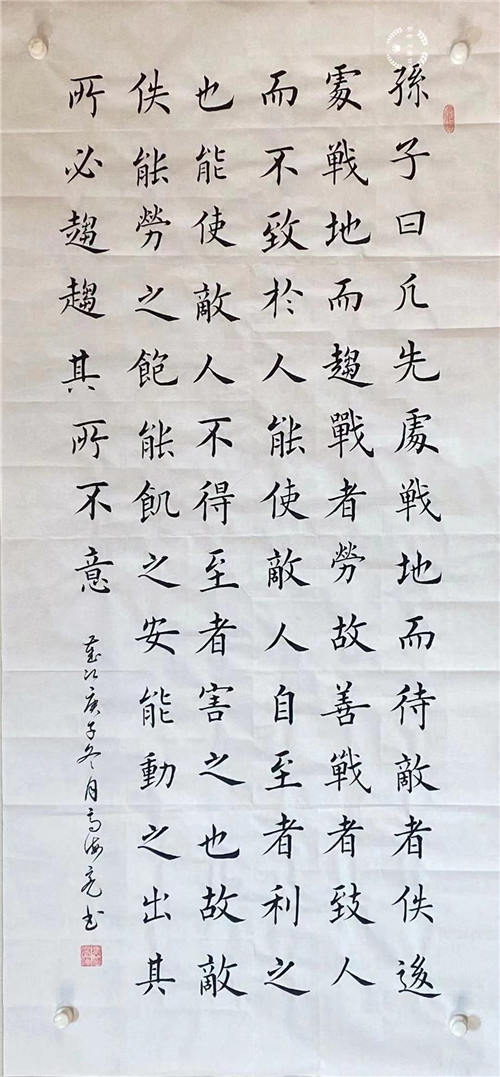 孫子曰凡先處戰地而待敵者佚後
處戰地而趨戰者勞故善戰者致人
而不致於人能使敵人自至者利之
也能使敵人不得至者害之也故敵
佚能勞之飽能飢之安能動之出其
所必趨趨其所不意
歲次庚子冬月高海亮书